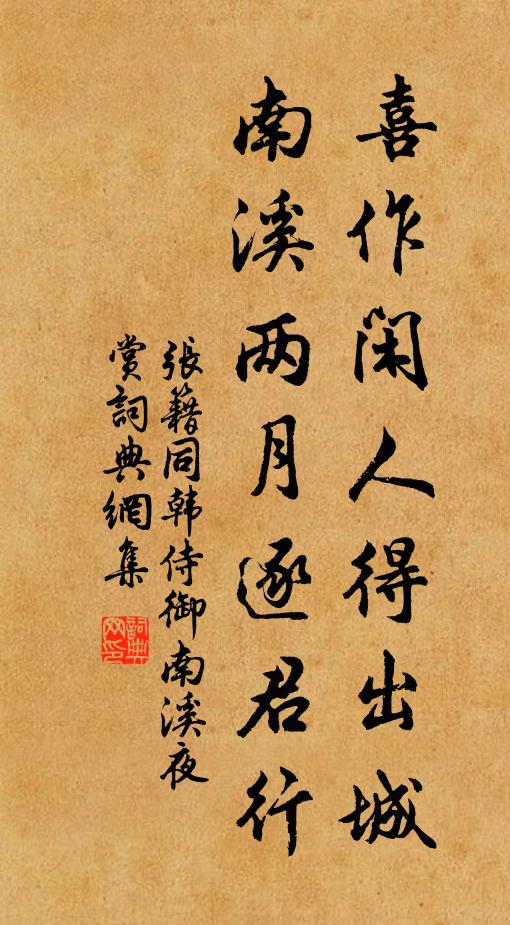 喜作闲人得出城
南溪两月逐君行
張籍同韩侍御南溪夜
賞詞典網集
詞典網印